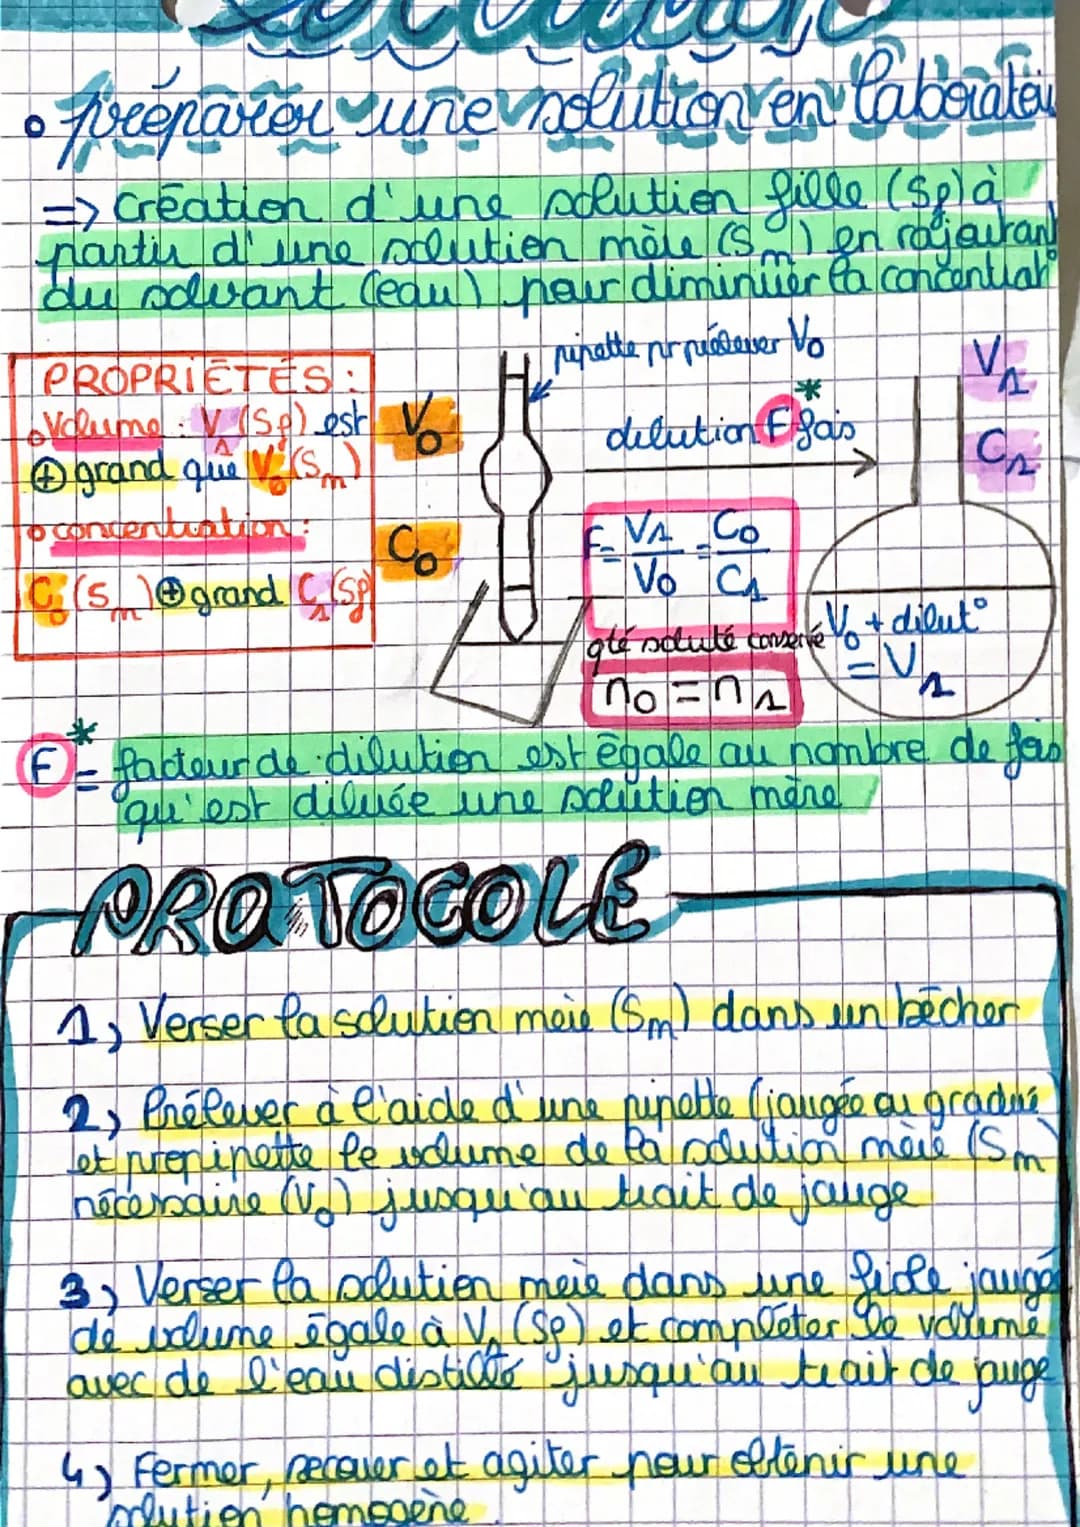 • préparer une solution en
=> Création d'une solution fille (Sf) à
partir d'une solution mère (Sm) en rajoutant
du solvant (eau) pour diminuer la concentrat°
pipette pr prélever V0
PROPRIÉTÉS :
• Volume : V1 (Sf) est
⊕ grand que V0 (Sm)
• concentration :
C0 (Sm) ⊕ grand C1 (Sf)
V0
C0
dilution F* fois
F = V1/V0 = C0/C1
qté soluté conservé
n0 = n1
V1
C1
V0 + dilut°
= V1
F* = facteur de dilution est égale au nombre de fois
qu'est diluée une solution mère
PROTOCOLE
1) Verser la solution mère (Sm) dans un bécher
2) Prélever à l'aide d'une pipette (jaugée ou gradué
et propipette le volume de la solution mère (Sm
nécessaire (V0) jusqu'au trait de jauge
3) Verser la solution mère dans une fiole jaugé
de volume égale à V1 (Sf) et compléter le volume
avec de l'eau distillé jusqu'au trait de jauge
4) Fermer, secouer et agiter pour obtenir une
solution homogène